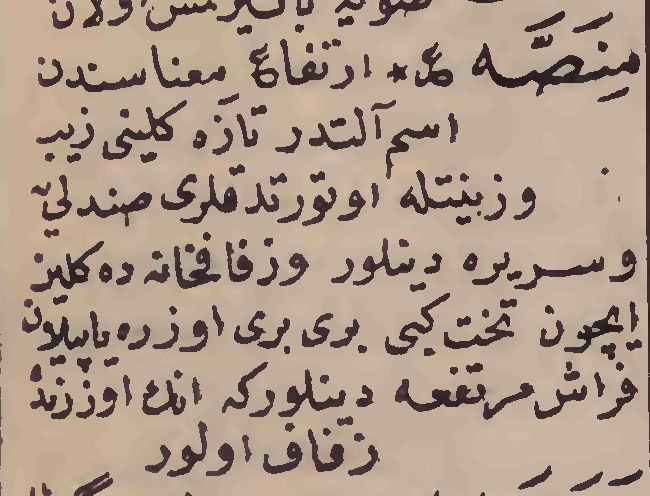 صوبه باشدرمش اولان
مِنَصَّه ع٭ ارتفاع معناسندن
اسم آلتدر تازه کلینی زیب
و زینتله اوتورتدقلری صندلیه
و سریره دینلور و زفافخانه ده کلین
ایچون تخت کبی بری بری اوزره یاپیلان
فراش مرتفعه دینلور که انك اوزرنده
زفاف اولور